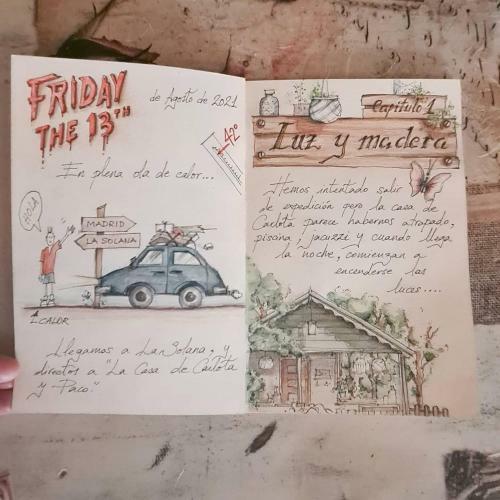 FRIDAY
THE 13TH
de Agosto de 2021
42º
En plena ola de calor...
¡HOLA!
MADRID
LA SOLANA
CALOR
Llegamos a La Solana, y
directos a "La Casa de Carlota
y Paco".
Capítulo 1
Luz y madera
Hemos intentado salir
de expedición pero la casa de
Carlota parece habernos atrapado,
piscina, jacuzzi y cuando llega
la noche, comienzan a
encenderse las
luces....